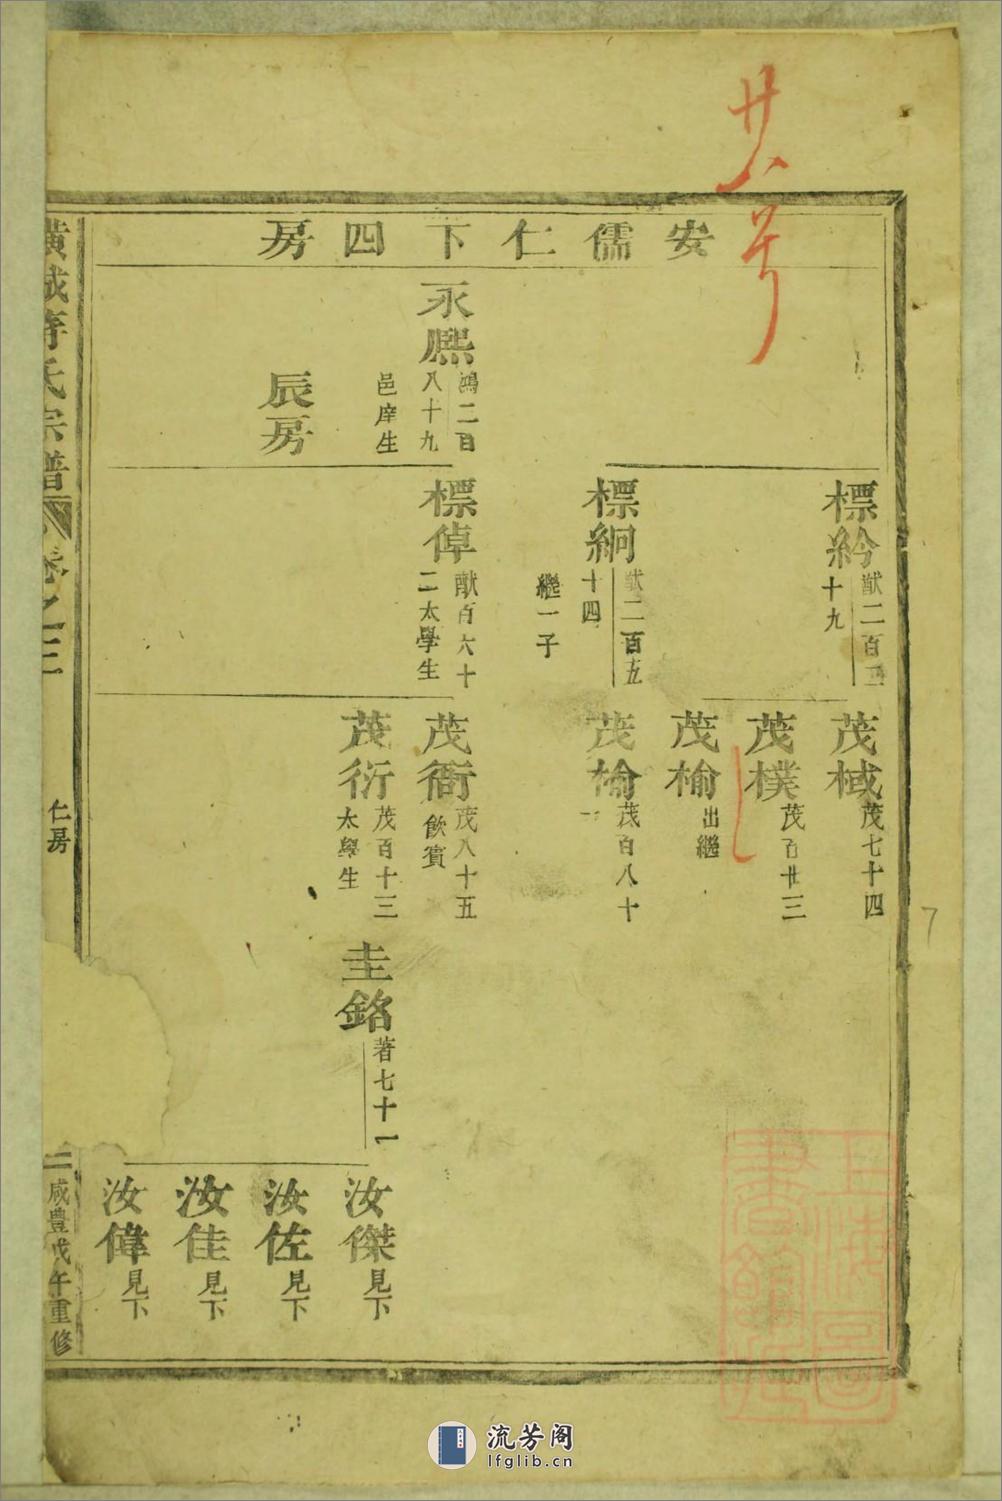 廿八号
安儒仁下四房
永熙
鴻二百
八十九
邑庠生
辰房
標紟
猷二百二
十九
標絅
猷二百五
十四
繼一子
標倬
猷百六十
二太學生
茂棫
茂七十四
茂樸
茂百廿三
茂榆
出繼
茂榆
茂百八十
一
茂衙
茂八十五
飲賓
茂衍
茂百十三
太學生
圭銘
著七十一
汝傑
見下
汝佐
見下
汝佳
見下
汝偉
見下
橫城蔣氏宗譜
卷之三
仁房
二
咸豊戊午重修
上海圖書館藏
7
流芳阁
lfglib.cn